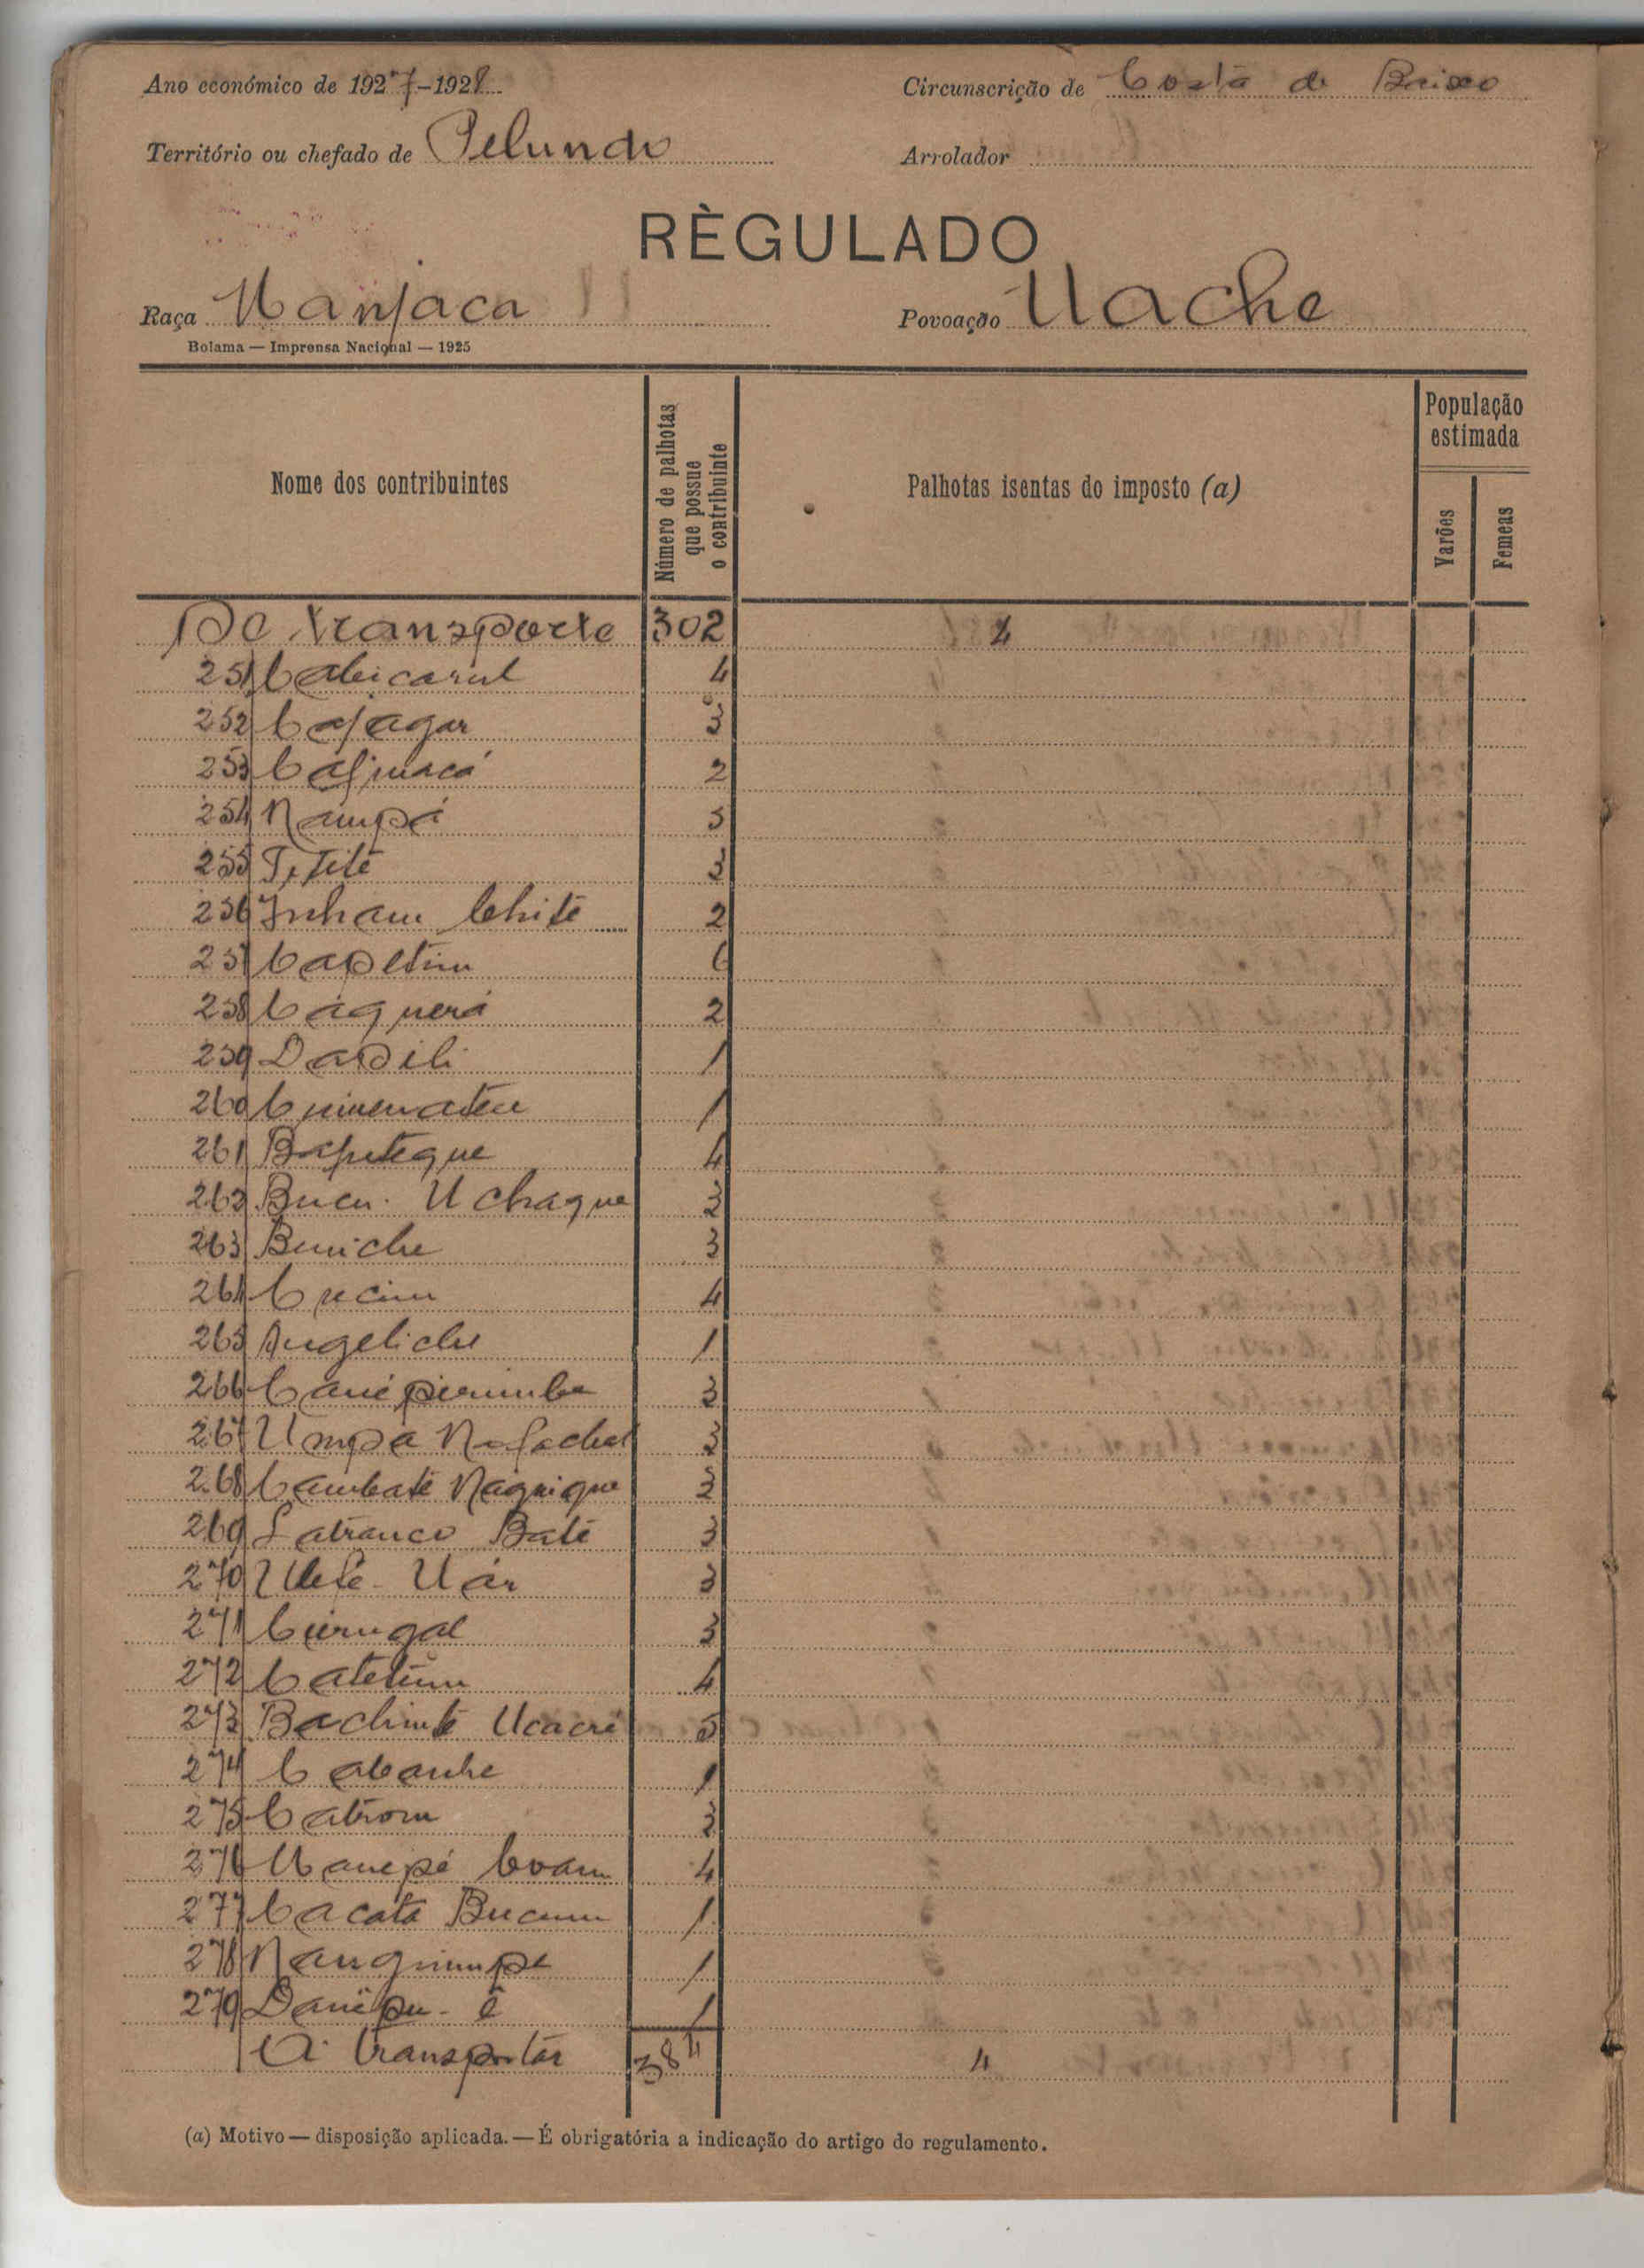 Ano económico de 1927-1928 Circunscrição de Costa de Baixo
Território ou chefado de Pelundo Arrolador
RÈGULADO
Raça Manjaca Povoação Uache
Bolama — Imprensa Nacional — 1925
Nome dos contribuintes
Número de palhotas que possue o contribuinte
Palhotas isentas do imposto (a)
População estimada
Varões
Femeas
De transporte 302 4
251 Cabicarul 4
252 Cajagar 3
253 2
254 Nampá 3
255 Titite 3
256 Inham Chite 2
257 Capetim 6
258 Caguera 2
259 Dapili 1
260 1
261 Baputegue 4
262 Bucu. Uchaque 3
263 Beniche 3
264 4
265 Angeliche 1
266 3
267 Umpa 3
268 Cambaté Naguique 3
269 Latranco Baté 3
270 Uar 3
271 Curugal 3
272 Catetum 4
273 Bachinte Ucacré 5
274 Cabanhe 1
275 Catrom 3
276 Manepé Coam 4
277 Cacata Bucum 1
278 Nanguimpe 1
279 1
A transportar 384 4
(a) Motivo — disposição aplicada. — É obrigatória a indicação do artigo do regulamento.